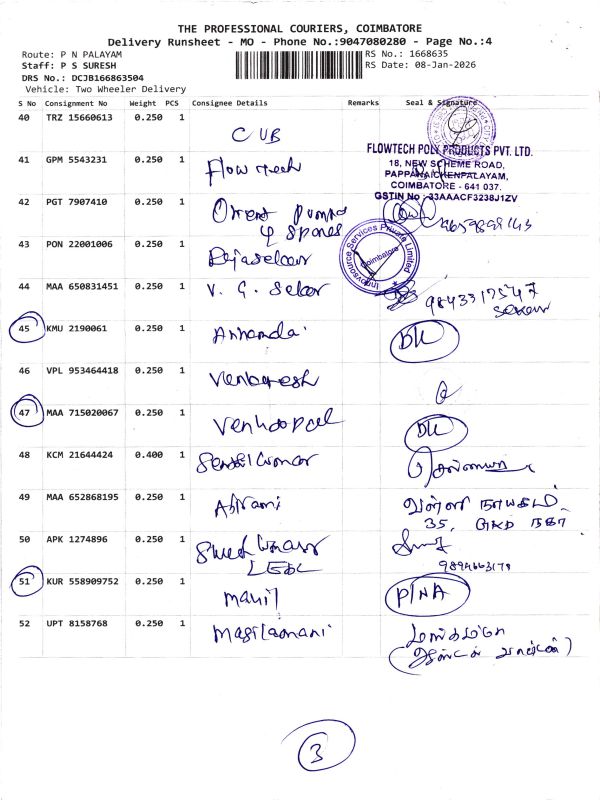 THE PROFESSIONAL COURIERS, COIMBATORE
Delivery Runsheet - MO - Phone No.:9047080280 - Page No.:4
Route: P N PALAYAM
RS No.: 1668635
Staff: P S SURESH
RS Date: 08-Jan-2026
DRS No.: DCJB166863504
Vehicle: Two Wheeler Delivery
S No Consignment No Weight PCS Consignee Details Remarks Seal & Signature
40 TRZ 15660613 0.250 1 CUB
FLOWTECH POLY PRODUCTS PVT. LTD.
18, NEW SCHEME ROAD,
PAPPANAICKENPALAYAM,
COIMBATORE - 641 037.
GSTIN No : 33AAACF3238J1ZV
41 GPM 5543231 0.250 1 Flow tech
42 PGT 7907410 0.250 1 Orient Pumps
& Spares
43 PON 22001006 0.250 1 Rajasekar
Infysource Services Private Limited
Coimbatore
44 MAA 650831451 0.250 1 V. G. Sekar 9843317547
45 KMU 2190061 0.250 1 DL
46 VPL 953464418 0.250 1 Venkatesh
47 MAA 715020067 0.250 1 Venugopal DL
48 KCM 21644424 0.400 1 Senthil Kumar
49 MAA 652868195 0.250 1 Abirami வள்ளி நாயகம்
35, GKD நகர்
50 APK 1274896 0.250 1 Suresh Kumar
9894663178
51 KUR 558909752 0.250 1 P/NA
52 UPT 8158768 0.250 1 Masilamani
3